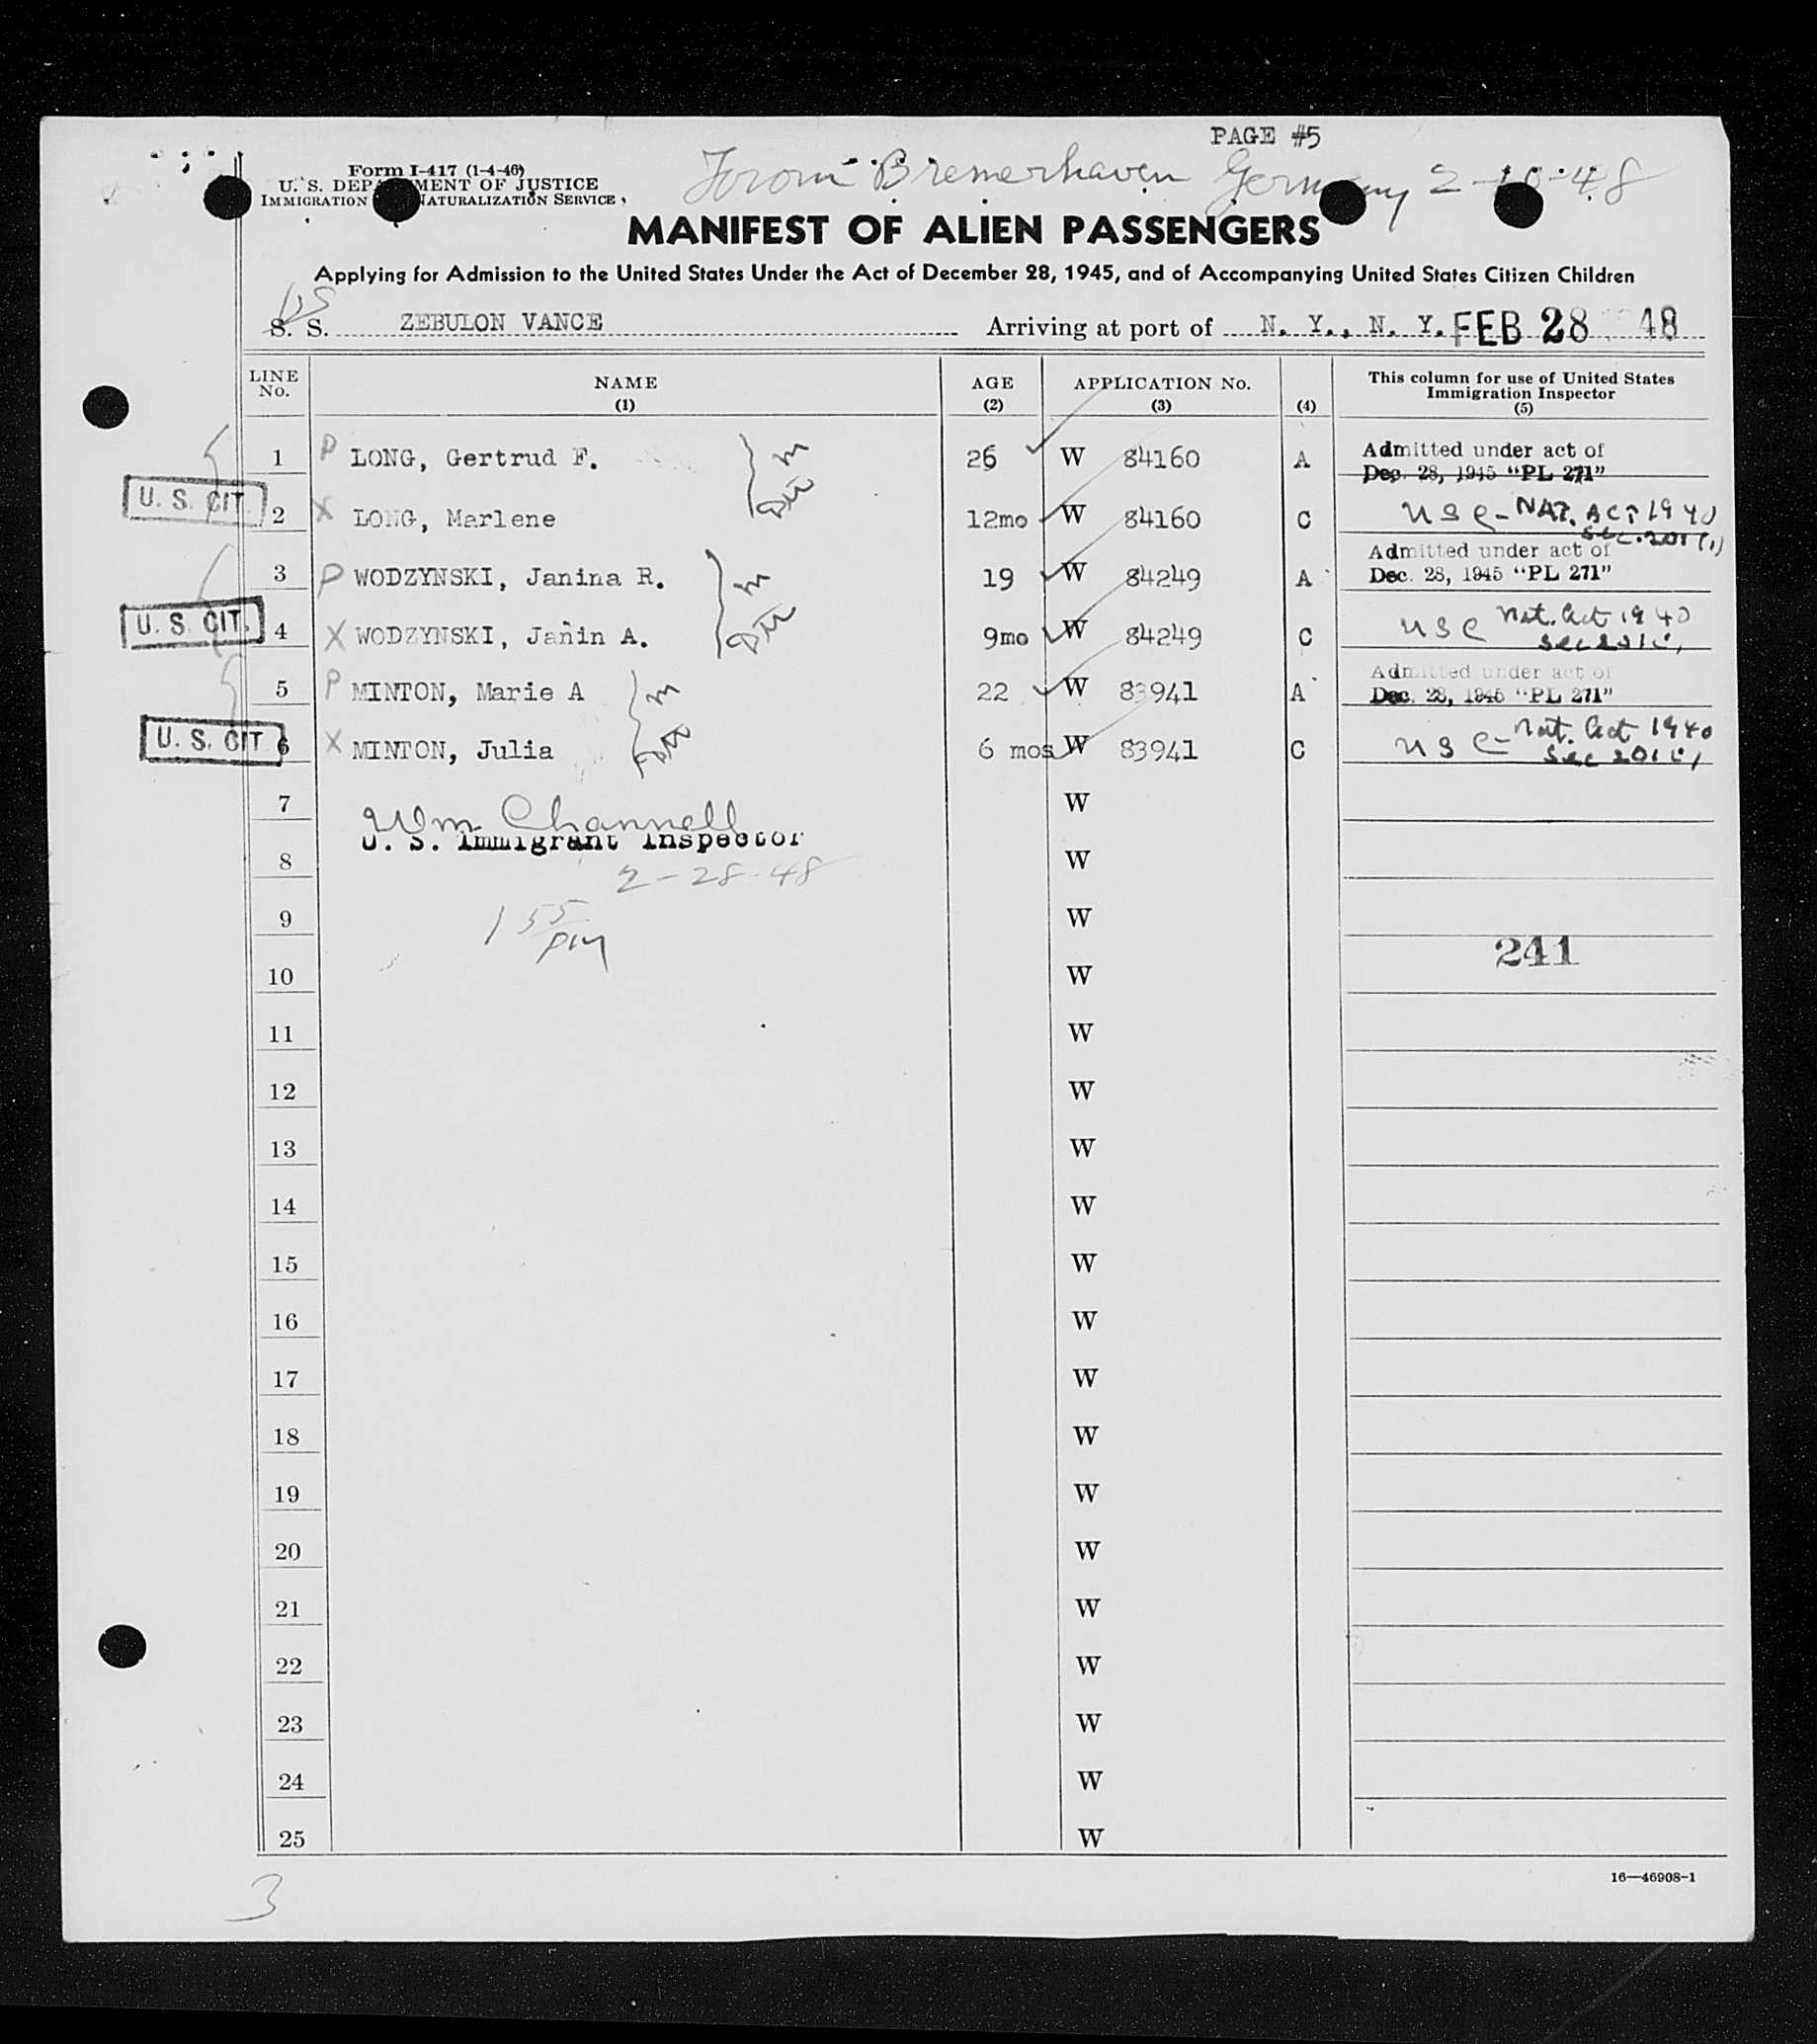 PAGE #5
From Bremerhaven Germany
Form I-417 (1-4-46)
U. S. DEPARTMENT OF JUSTICE
IMMIGRATION NATURALIZATION SERVICE
MANIFEST OF ALIEN PASSENGERS
Applying for Admission to the United States Under the Act of December 28, 1945, and of Accompanying United States Citizen Children
US
S. S. ZEBULON VANCE Arriving at port of N. Y., N. Y. FEB 28 48
LINE No. NAME (1) AGE (2) APPLICATION No. (3) (4) This column for use of United States Immigration Inspector (5)
1 P LONG, Gertrud F. m 26 W 84160 A Admitted under act of Dec. 28, 1945 "PL 271"
U. S. CIT. 2 X LONG, Marlene dtr 12mo W 84160 C USC - NAT. ACT 1940 Sec. 201(i)
3 P WODZYNSKI, Janina R. m 19 W 84249 A Admitted under act of Dec. 28, 1945 "PL 271"
U. S. CIT. 4 X WODZYNSKI, Janin A. dtr 9mo W 84249 C USC Nat. Act 1940 Sec 201(i)
5 P MINTON, Marie A m 22 W 83941 A Admitted under act of Dec. 28, 1945 "PL 271"
U. S. CIT 6 X MINTON, Julia dtr 6 mos W 83941 C USC - Nat. Act 1940 Sec 201(i)
7 Wm Channell W
U. S. Immigrant Inspector
8 W
2-28-48
9 W
1 55 pm
241
10 W
11 W
12 W
13 W
14 W
15 W
16 W
17 W
18 W
19 W
20 W
21 W
22 W
23 W
24 W
25 W
16—46908-1
3